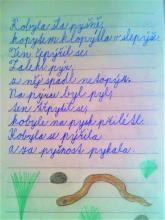 Kobyla šla pyšně,
kopytem klopýtla o slepýše.
Ten čepýřil se:
Zalekl pýr,
z něj spadl netopýr.
Na pýru byl pyl,
ten třpytil se,
kobyle na pysk přilétl.
Kobyla se pýřila
a za pyšnost pykala.